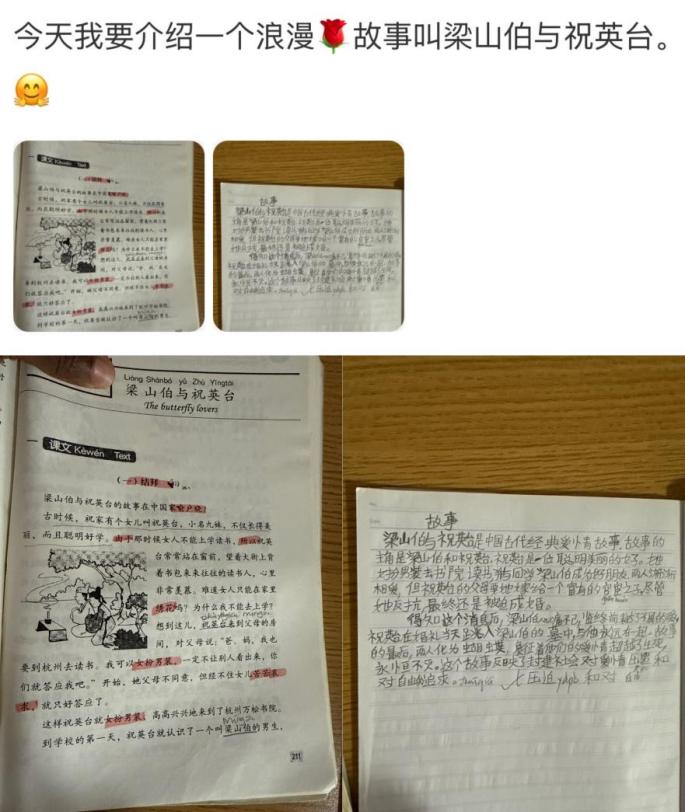 今天我要介绍一个浪漫🌹故事叫梁山伯与祝英台。
🤗
Liáng Shānbó yǔ Zhù Yīngtái
梁山伯与祝英台
The butterfly lovers
一 课文 Kèwén Text
（一）结拜
梁山伯与祝英台的故事在中国家喻户晓。
古时候，祝家有个女儿叫祝英台，小名九妹，不仅长得美
丽，而且聪明好学。由于那时候女人不能上学读书，所以祝英
台常常站在窗前，望着大街上背
着书包来来往往的读书人，心里
非常羡慕。难道女人只能在家里
绣花吗？为什么我不能去上学？
想到这儿，祝英台来到父母的房
间，对父母说：“爸、妈，我也
要到杭州去读书。我可以女扮男装，一定不让别人看出来，你
们就答应我吧。”开始，她父母不同意，但经不住女儿苦苦哀
求，就只好答应了。
这样祝英台就女扮男装，高高兴兴地来到了杭州万松书院。
到学校的第一天，祝英台就认识了一个叫梁山伯的男生，
211
故事
梁山伯与祝英台是中国古代经典爱情故事，故事的
主角是梁山伯和祝英台。祝英台是一位聪明美丽的女子。她
女扮男装去书院读书，与同学梁山伯成为好朋友，两人渐渐
相爱，但祝英台的父母要她嫁给一个富有的官宦之子，尽管
她反抗，最终还是被迫成婚。
得知这个消息后，梁山伯
祝英台在婚礼当天 梁山伯的墓中，与他永远在一起。故事
的最后，两人化为蝴蝶，象征着他们的爱情超越了生死，
永少豆不灭。这个故事反映了封建社会对爱情 和
对自由追求。